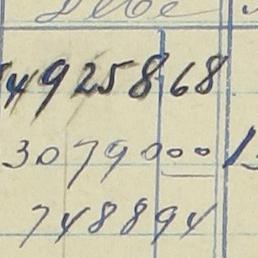 Debe
4925868
3079000
748894